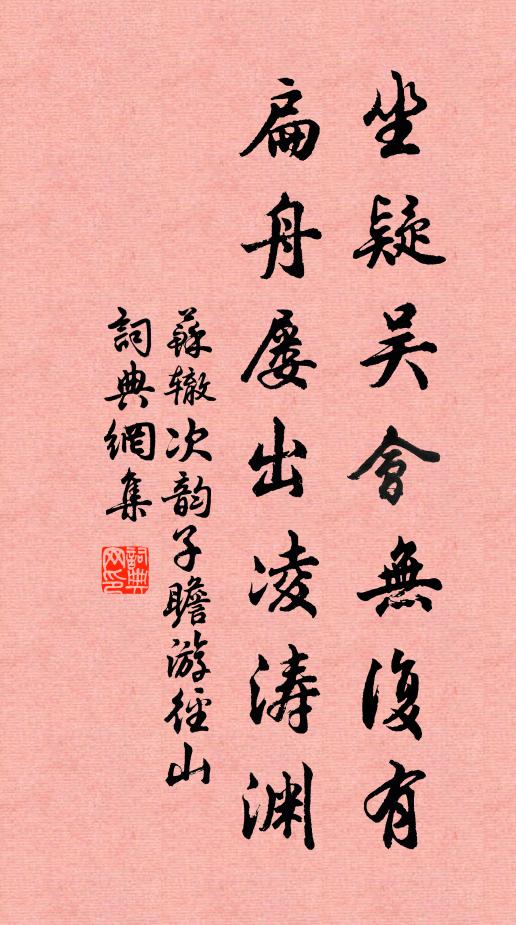 坐疑吴會無復有
扁舟屡出凌涛渊
蘇辙次韵子瞻游徑山
詞典網集
詞典网印